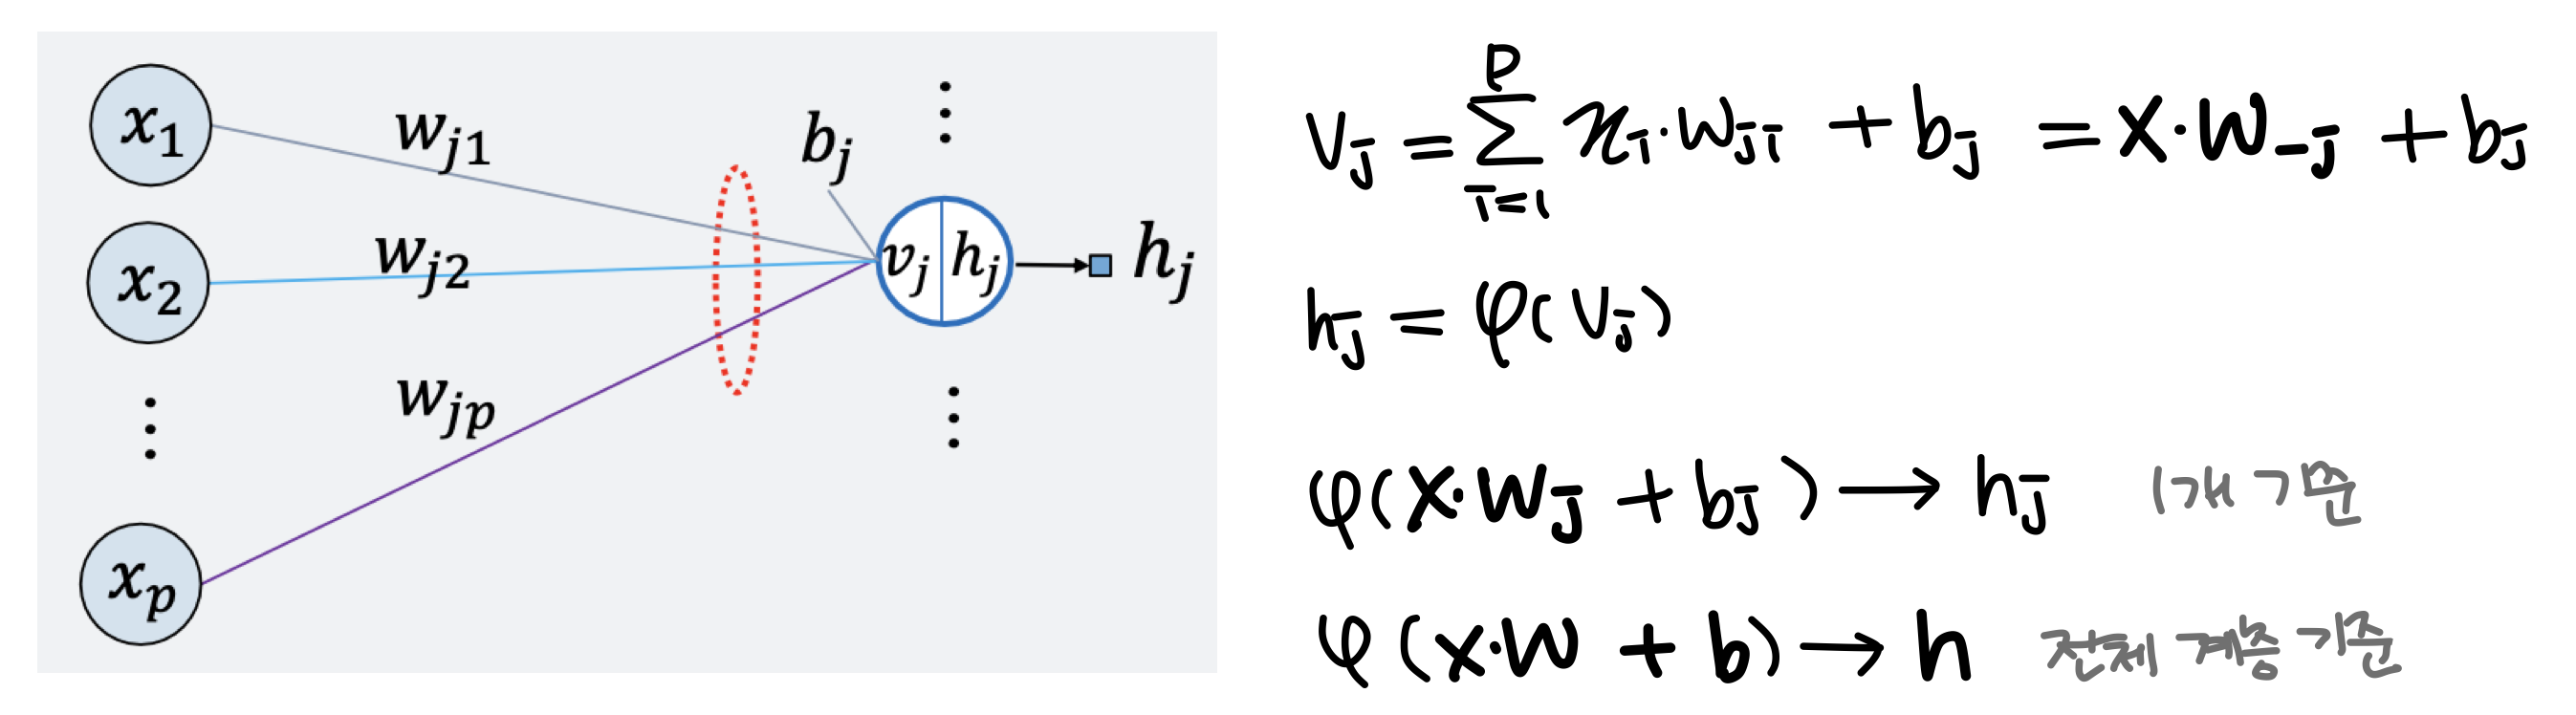 x₁
w_{j1}
b_j
⋮
x₂
w_{j2}
v_j h_j
h_j
⋮
w_{jp}
⋮
x_p
V_j = \sum_{i=1}^{P} x_i · w_{ji} + b_j = x · w_{-j} + b_j
h_j = φ(V_j)
φ(x · w_j + b_j) → h_j 1개 기준
φ(x · W + b) → h 전체 계층 기준